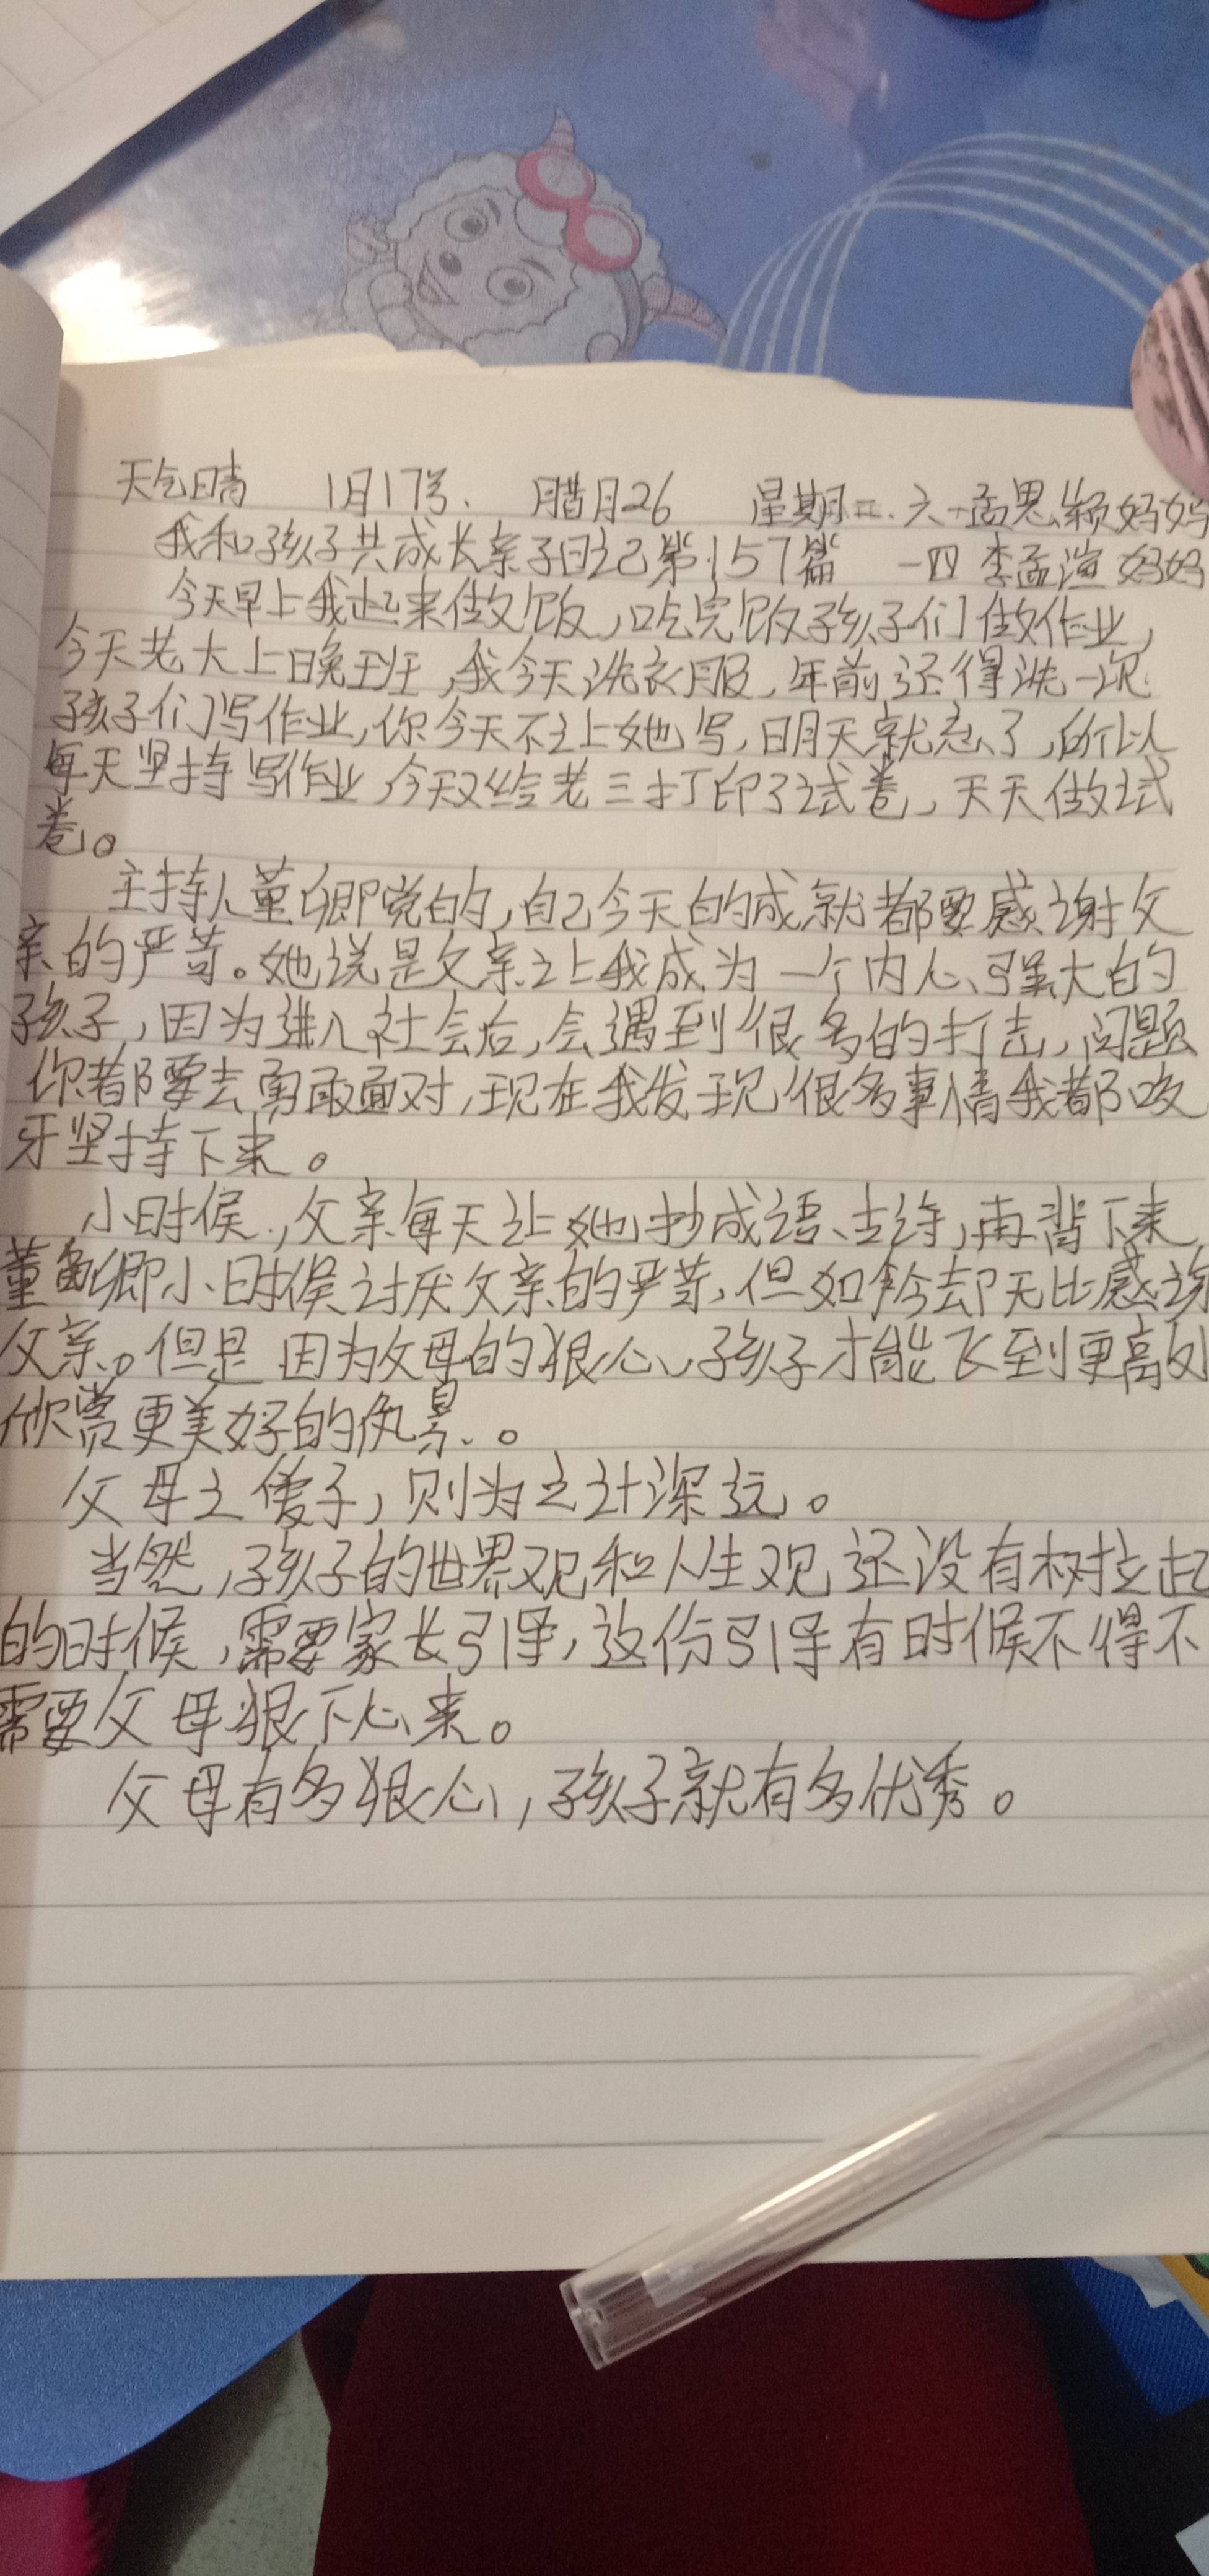 天气晴 1月17号. 腊月26 星期二.六一孟思颖妈妈
我和孩子共成长亲子日记第157篇 一四李孟渲妈妈
今天早上我起来做饭,吃完饭孩子们做作业,
今天老大上晚班,我今天洗衣服,年前还得洗一次
孩子们写作业,你今天不让她写,明天就忘了,所以
每天坚持写作业,今天又给老三打印了试卷,天天做试
卷。
主持人董卿说的,自己今天的成就都要感谢父
亲的严苛。她说是父亲让我成为一个内心强大的
孩子,因为进入社会后,会遇到很多的打击,问题
你都要去勇敢面对,现在我发现很多事情我都咬
牙坚持下来。
小时候,父亲每天让她抄成语、古诗,再背下来,
董卿小时侯讨厌父亲的严苛,但如今却无比感谢
父亲。但是因为父母的狠心、孩子才能飞到更高处
欣赏更美好的风景。
父母之爱子,则为之计深远。
当然,孩子的世界观和人生观还没有树立起
的时候,需要家长引导,这份引导有时候不得不
需要父母狠下心来。
父母有多狠心,孩子就有多优秀。